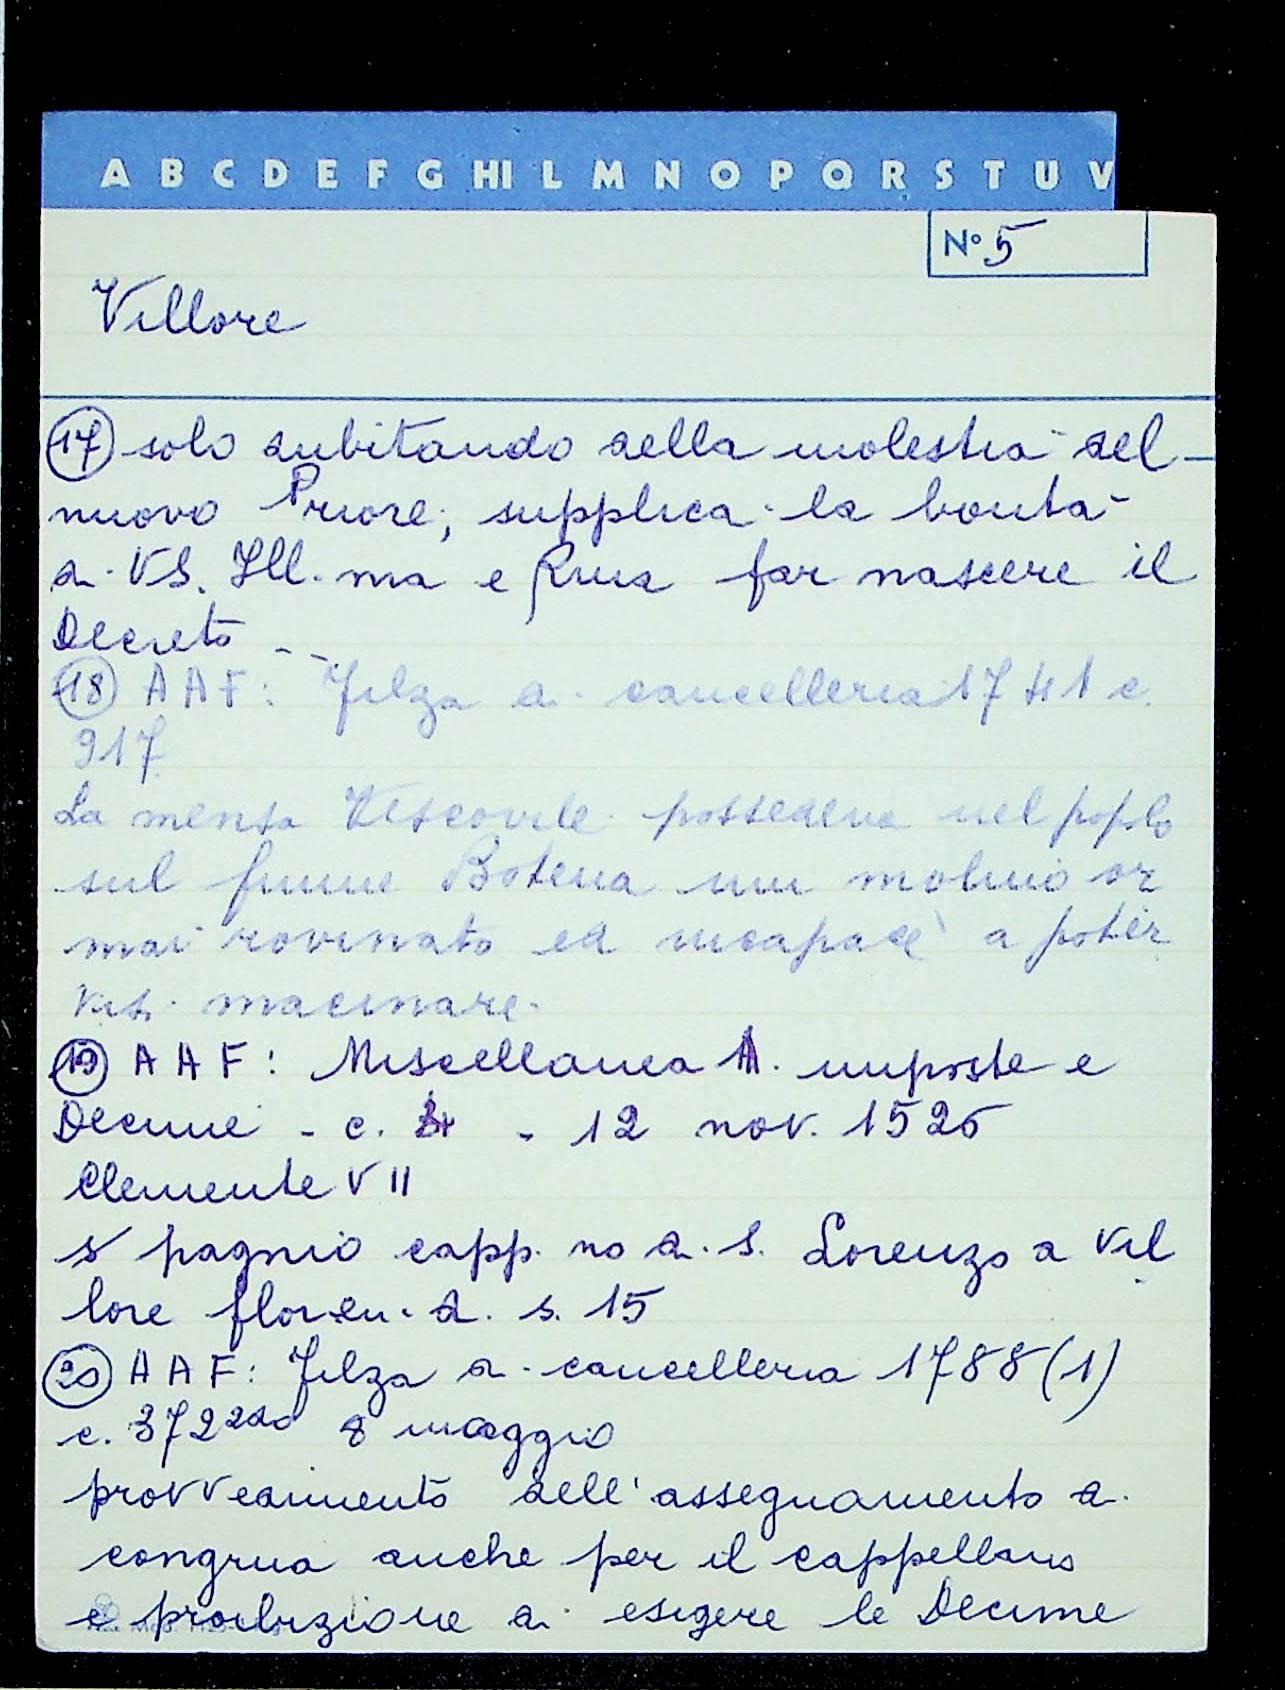 A B C D E F G HI L M N O P Q R S T U V
N° 5
Villore
(17) solo dubitando della molestia del
nuovo Priore, supplica la bontà
di VS. Ill.ma e Rma far nascere il
Decreto --
(18) AAF: Filza di cancelleria 1741 c.
917
La mensa Vescovile possedeva nel popolo
sul fiume Botena un molino or
mai rovinato ed incapace a poter
visi macinare.
(19) AAF: Miscellanea A. imposte e
Decime - c. - 12 nov. 1526
Clemente VII
pagnio capp. no di S. Lorenzo a Vil
lore floren. d. s. 15
(20) AAF: Filza di cancelleria 1788 (1)
c. 372 8 maggio
provvedimento dell'assegnamento di
congrua anche per il cappellano
e proibizione di esigere le Decime